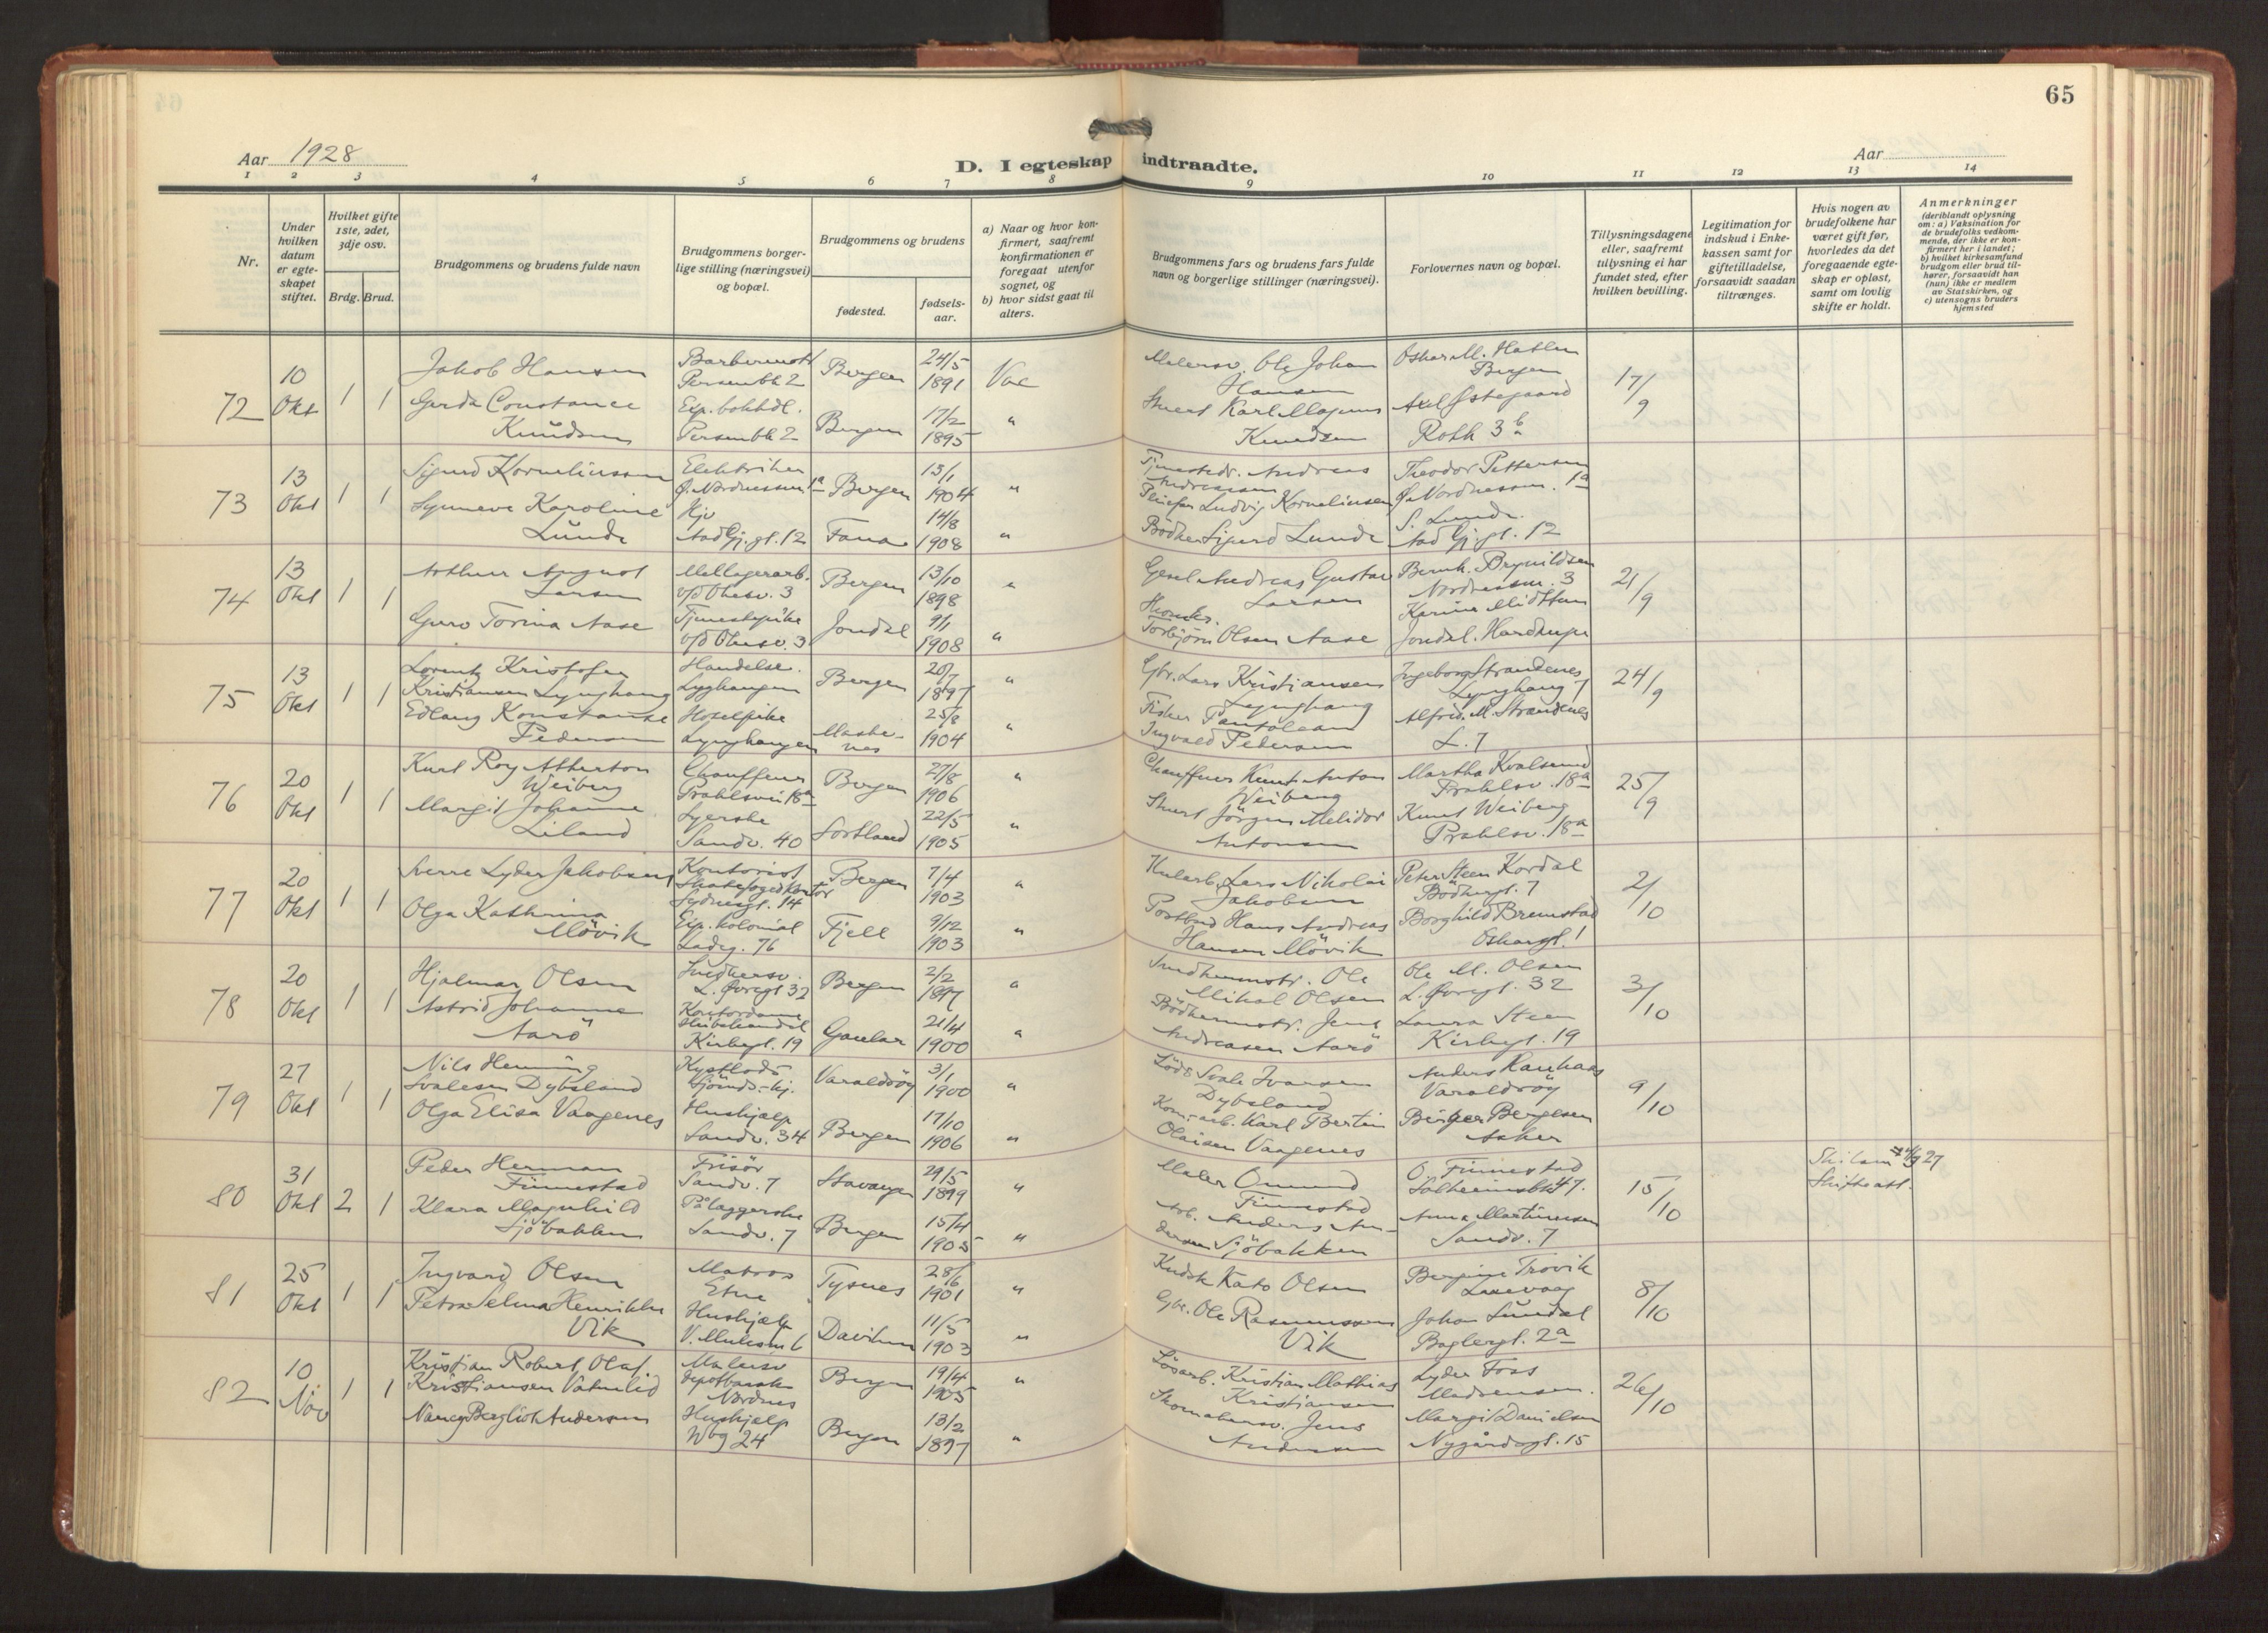 65
Aar 1928
D. I egteskap indtraadte.
Aar
1 2 3 4 5 6 7 8 9 10 11 12 13 14
Nr.
Under hvilken datum er egteskapet stiftet.
Hvilket gifte 1ste, 2det, 3dje osv.
Brdg. Brud.
Brudgommens og brudens fulde navn
Brudgommens borgerlige stilling (næringsvei) og bopæl.
Brudgommens og brudens
fødested.
fødselsaar.
a) Naar og hvor konfirmert, saafremt konfirmationen er foregaat utenfor sognet, og
b) hvor sidst gaat til alters.
Brudgommens fars og brudens fars fulde navn og borgerlige stillinger (næringsvei).
Forlovernes navn og bopæl.
Tillysningsdagene eller, saafremt tillysning ei har fundet sted, efter hvilken bevilling.
Legitimation for indskud i Enkekassen samt for giftetilladelse, forsaavidt saadan tiltrænges.
Hvis nogen av brudefolkene har været gift før, hvorledes da det foregaaende egteskap er opløst, samt om lovlig skifte er holdt.
Anmerkninger
(deriblandt oplysning om: a) Vaksination for de brudefolks vedkommende, der ikke er konfirmert her i landet; b) hvilket kirkesamfund brudgom eller brud tilhører, forsaavidt han (hun) ikke er medlem av Statskirken, og c) utensogns bruders hjemsted
72 10 Okt 1 1
Jakob Hansen
Persenbk 2
Bergen 24/5 1891 Vac
Ole Johan Hansen
Oskar M. Hatlen Bergen
17/9
Gerda Constance Knudsen
Exp. bokhdl.
Persenbk 2
Bergen 17/2 1895 "
Stuert Karl Magnus Knudsen
Axel Østegaard
73 13 Okt 1 1
Sigurd Korneliussen
Elektriker
Ø. Nordnessm 1a
Bergen 13/1 1904 "
Andreas Andreassen
Ludvig Korneliussen
Theodor Pettersen
Ø. Nordnessm. 1a
Synneve Karoline Lunde
Hjv
Aad Gj. gt. 12
Fana 14/8 1908 "
Bödker Sigurd Lunde
S. Lunde.
Aad Gj. gt. 12
74 13 Okt 1 1
Arthur August Larsen
Bergen 13/10 1898 "
Andreas Gustav Larsen
Bernh. Brynildsen
Nordnessm. 3
21/9
Guro Torina Aase
Tjenestepike
Jondal 9/1 1908 "
Torbjörn Olsen Aase
Karina Midttun
Jondal. Hardanger
75 13 Okt 1 1
Lorentz Kristofer Kristiansen Lynghaug
Bergen 20/7 1897 "
Gbr. Lars Kristiansen Lynghaug
Ingeborg Strandenes
Lynghaug 7
24/9
Edlaug Konstanse Pedersen
Hotelpike
Lynghaugen
25/8 1904 "
Fisker Pantoleau Ingvald Pedersen
Alfred. M. Strandenes
L. 7
76 20 Okt 1 1
Kurt Roy Atherton Weiberg
Chauffeur
Prahlsvei 18a
Bergen 27/8 1906 "
Chauffeur Knut Anton Weiberg
Martha Kvalsund
Prahlsv. 18a
25/9
Margit Johanne Liland
Syerske
Sandv. 40
Sortland 22/5 1905 "
Stuert Jörgen Melidor Antonsen
Knut Weiberg
Prahlsv. 18a
77 20 Okt 1 1
Sverre Lyder Jakobsen
Kontorist
Skatefogedkontor
Sydnesgt. 14
Bergen 7/4 1903 "
Kularb. Lars Nikolai Jakobsen
Peter Steen Kordal
Bödkergt. 7
2/10
Olga Kathrina Mövik
Exp. kolonial
Ladeg. 76
Fjell 9/12 1903 "
Postbud Hans Andreas Hansen Mövik
Borghild Bremstad
Oskargt. 1
78 20 Okt 1 1
Hjalmar Olsen
Snedkersv.
L. Øvregt 32
Bergen 2/2 1897 "
Snedkermstr. Ole Mikal Olsen
Ole M. Olsen
L. Øvregt. 32
3/10
Astrid Johanne Aarö
Kontordame
Skibshandel
Kirkegt. 19
Gaular 21/4 1900 "
Bödkermstr. Jens Andreasen Aarö
Laura Steen
Kirkegt. 19
79 27 Okt 1 1
Nils Henning Svalesen Dybsland
Kystlods
Varaldsöy 3/1 1900 "
Lods Svale Ivarsen Dybsland
Anders Rauhaas
Varaldsöy
9/10
Olga Elisa Vaagenes
Hushjælp
Sandv. 34
Bergen 17/10 1906 "
Kom-arb. Karl Bertin Olaisen Vaagenes
Birger Bergesen
Asker
80 31 Okt 2 1
Peder Herman Finnestad
Frisör
Sandv. 7
Stavanger 29/5 1899 "
Maler Omund Finnestad
O. Finnestad
Solheimsbk 47.
15/10
Skiftatt.
Klara Magnhild Sjöbakken
Pålæggerske
Sandv. 7
Bergen 15/4 1905 "
Arb. Anders Andersen Sjöbakken
Anna Martinussen
Sandv. 7
81 25 Okt 1 1
Ingvard Olsen
Matros
Etne
Tysnes 28/6 1901 "
Kudsk Kato Olsen
Bergine Trovik
Laxevaag
8/10
Petra Selma Henrikke Vik
Hushjælp
Daviken 11/5 1903 "
Gbr. Ole Rasmussen Vik
Johan Lundal
Baglergt. 2a
82 10 Nov 1 1
Kristian Robert Olaf Kristiansen Vatnelid
Malersv
Depotbarak
Nordnes
Bergen 19/4 1905 "
Lösarb. Kristian Mathias Kristiansen
Lyder Foss
26/10
Nancy Bergliot Andersen
Hushjælp
Wbg 24
Bergen 13/2 1897 "
Skomakersv. Jens Andersen
Margit Danielsen
Nygårdsgt. 15